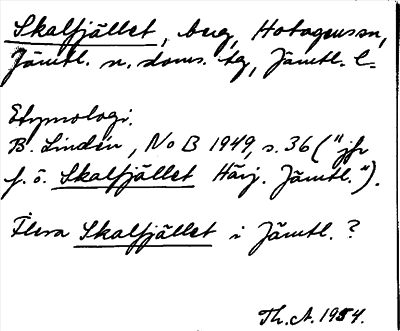 Skalfjället, berg, Hotagens sn,
Jämtl. n. doms. tg, Jämtl. l.
Etymologi.
B. Lindén, NoB 1949, s. 36 ("jfr
f. ö. Skalfjället Härj. Jämtl.").
Flera Skalfjället i Jämtl.?
Th. A. 1954.